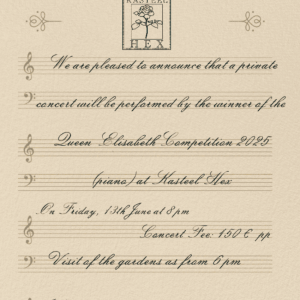 KASTEEL
HEX
We are pleased to announce that a private
concert will be performed by the winner of the
Queen Elisabeth Competition 2025
(piano) at Kasteel Hex
On Friday, 13th June at 8 pm
Concert Fee: 150 € pp
Visit of the gardens as from 6 pm